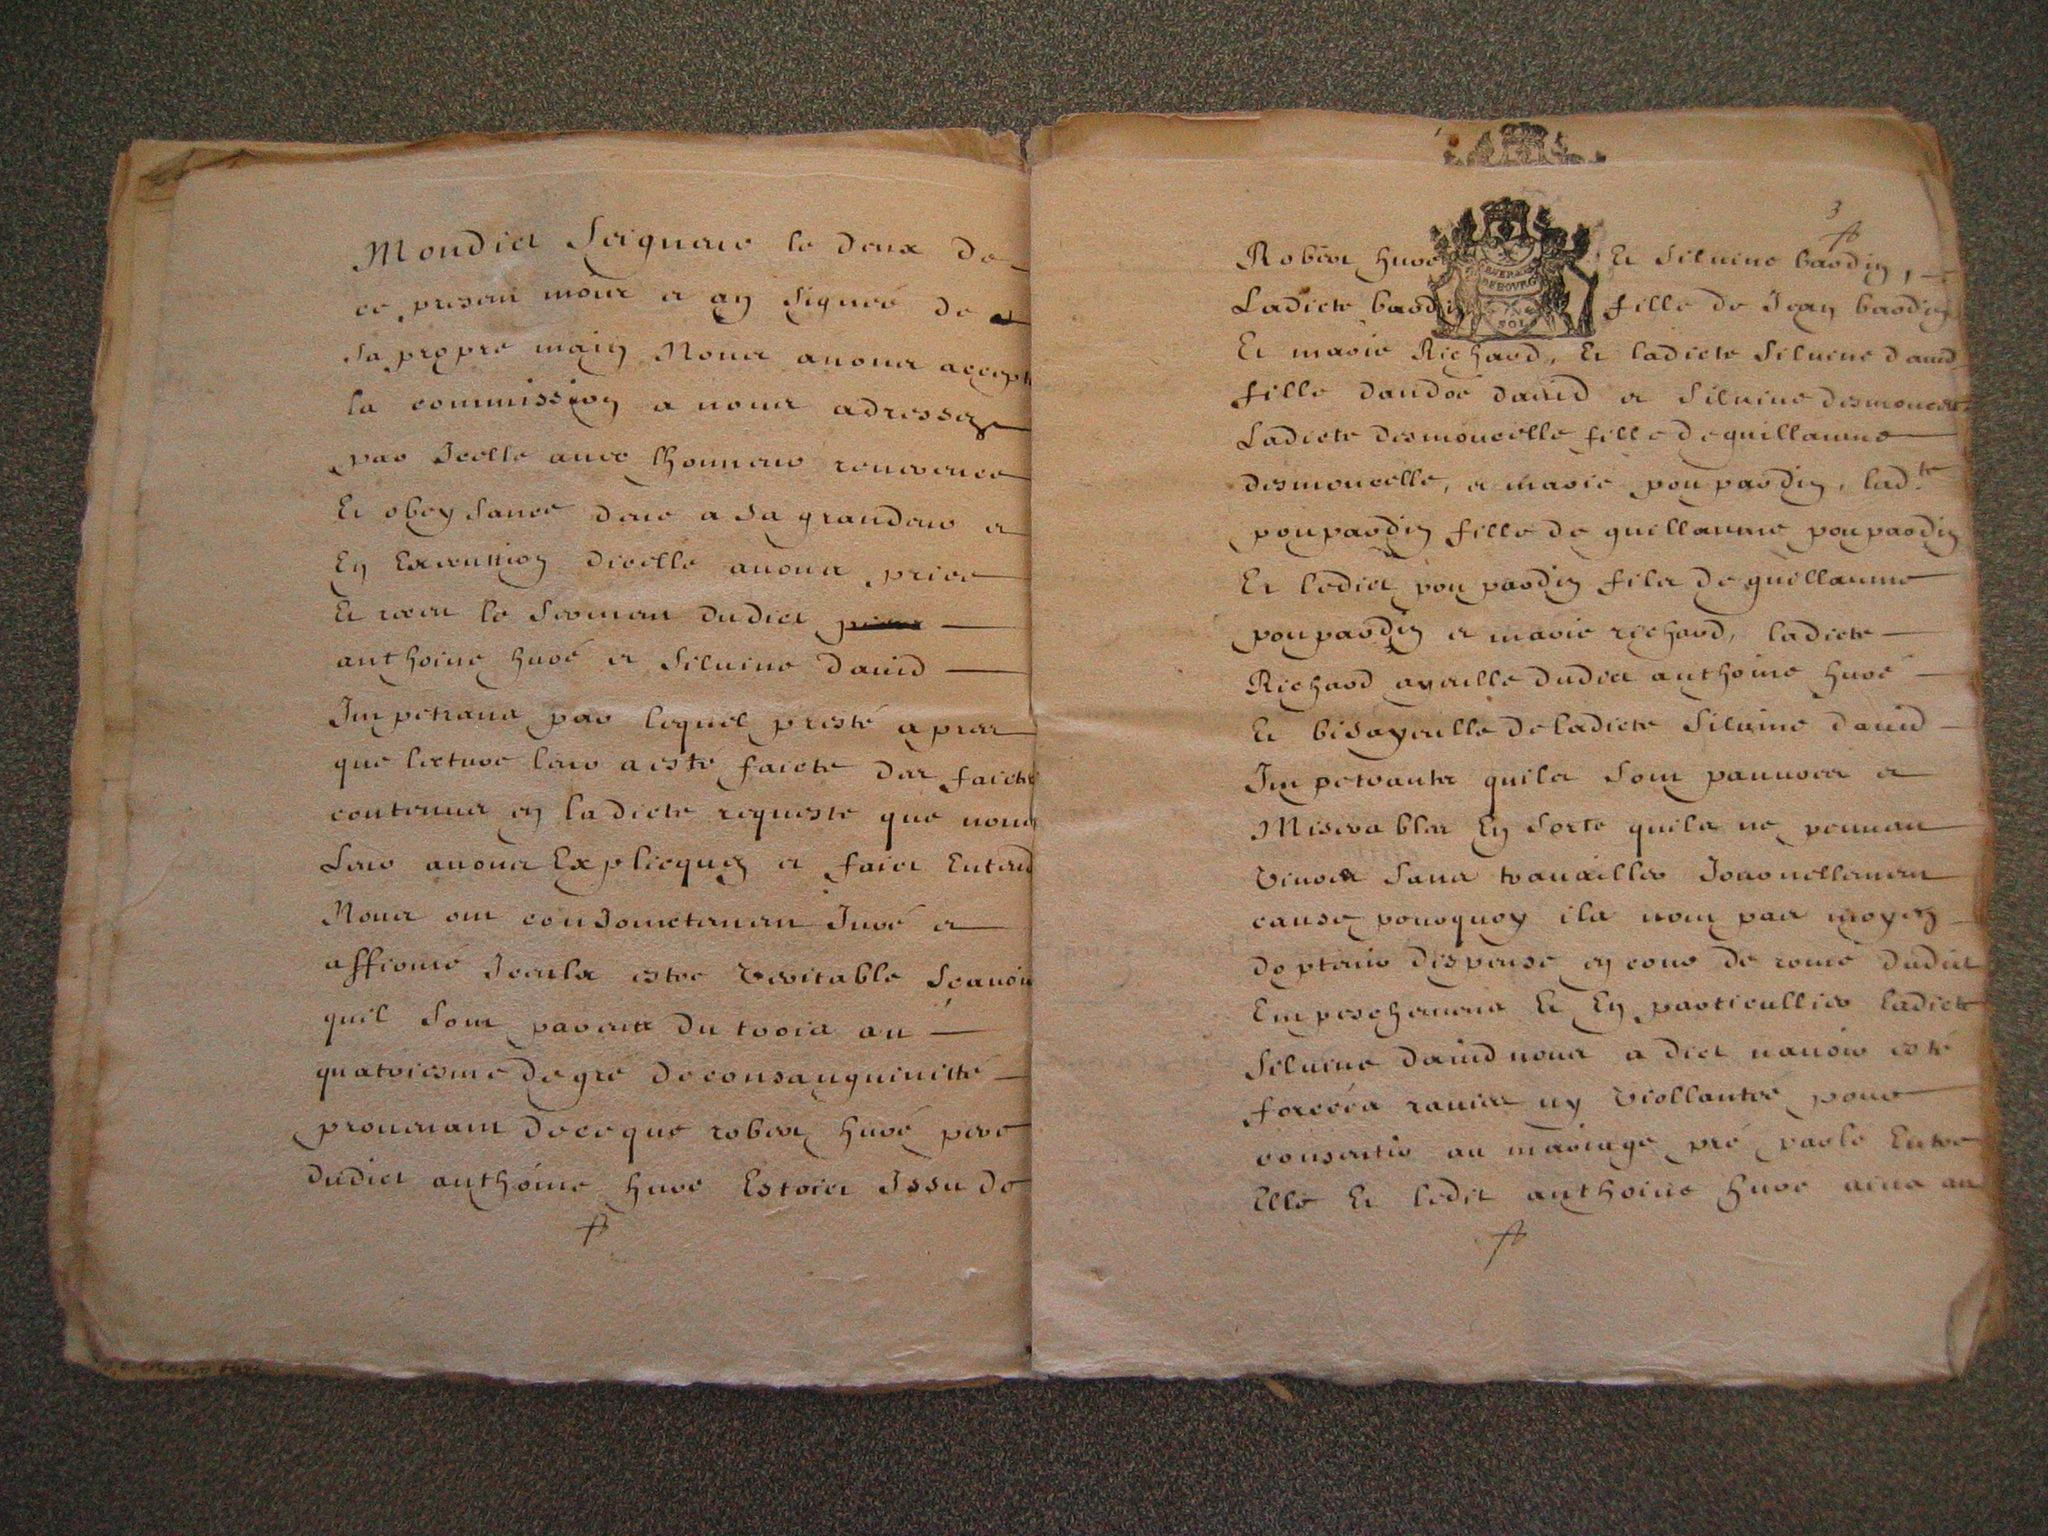 Mondict Seigneur le deux de
ce present mois et an signée de
sa propre main Nous avons accepté
la commission a nous adressez
par Icelle avec lhonneur reverence
Et obeysance deue a sa grandeur et
En Executtion dicelle avons price
Et receu le serment dudict
anthoine huré et silvine david
Impetrans par lequel presté apres
que lecture leur a esté faicte des faicts
contenus en ladicte requeste que nous
leur avons Explicquez et faict Entend
Nous ont conjoinctement Juré et
affirmé Iceulx estre veritable sçavoir
quil sont parents du trois au
quatriesme degré de consanguinitté
provenant de ce que robert huré pere
dudict anthoine huré Estoict Issu de
3
Robert huré Et silvine bardin,
GENERALITE
DE BOURGES
SOL
Ladicte bardin fille de Jean bardin
Et marie Richard, Et ladicte silvine david
fille dandré david et silvine desmoucelle
Ladicte desmoucelle fille de guillaume
desmoucelle, et marie poupardin, ladte
poupardin fille de guillaume poupardin
Et ledict poupardin fils de guillaume
poupardin et marie richard, ladicte
Richard ayeulle dudict anthoine huré
Et bisayeulle de ladicte silvine david
Impetrants quils sont pauvres et
Miserables En sorte quils ne peuvent
vivre sans travailler Journellement
cause pourquoy ils nont pas moyen
dobtenir dispense en cour de rome dudict
Empeschement Et En particullier ladicte
silvine david nous a dict navoir esté
forcée ravie ny viollantée pour
consentir au mariage pré parlé Entre
Elle Et ledit anthoine huré ains au